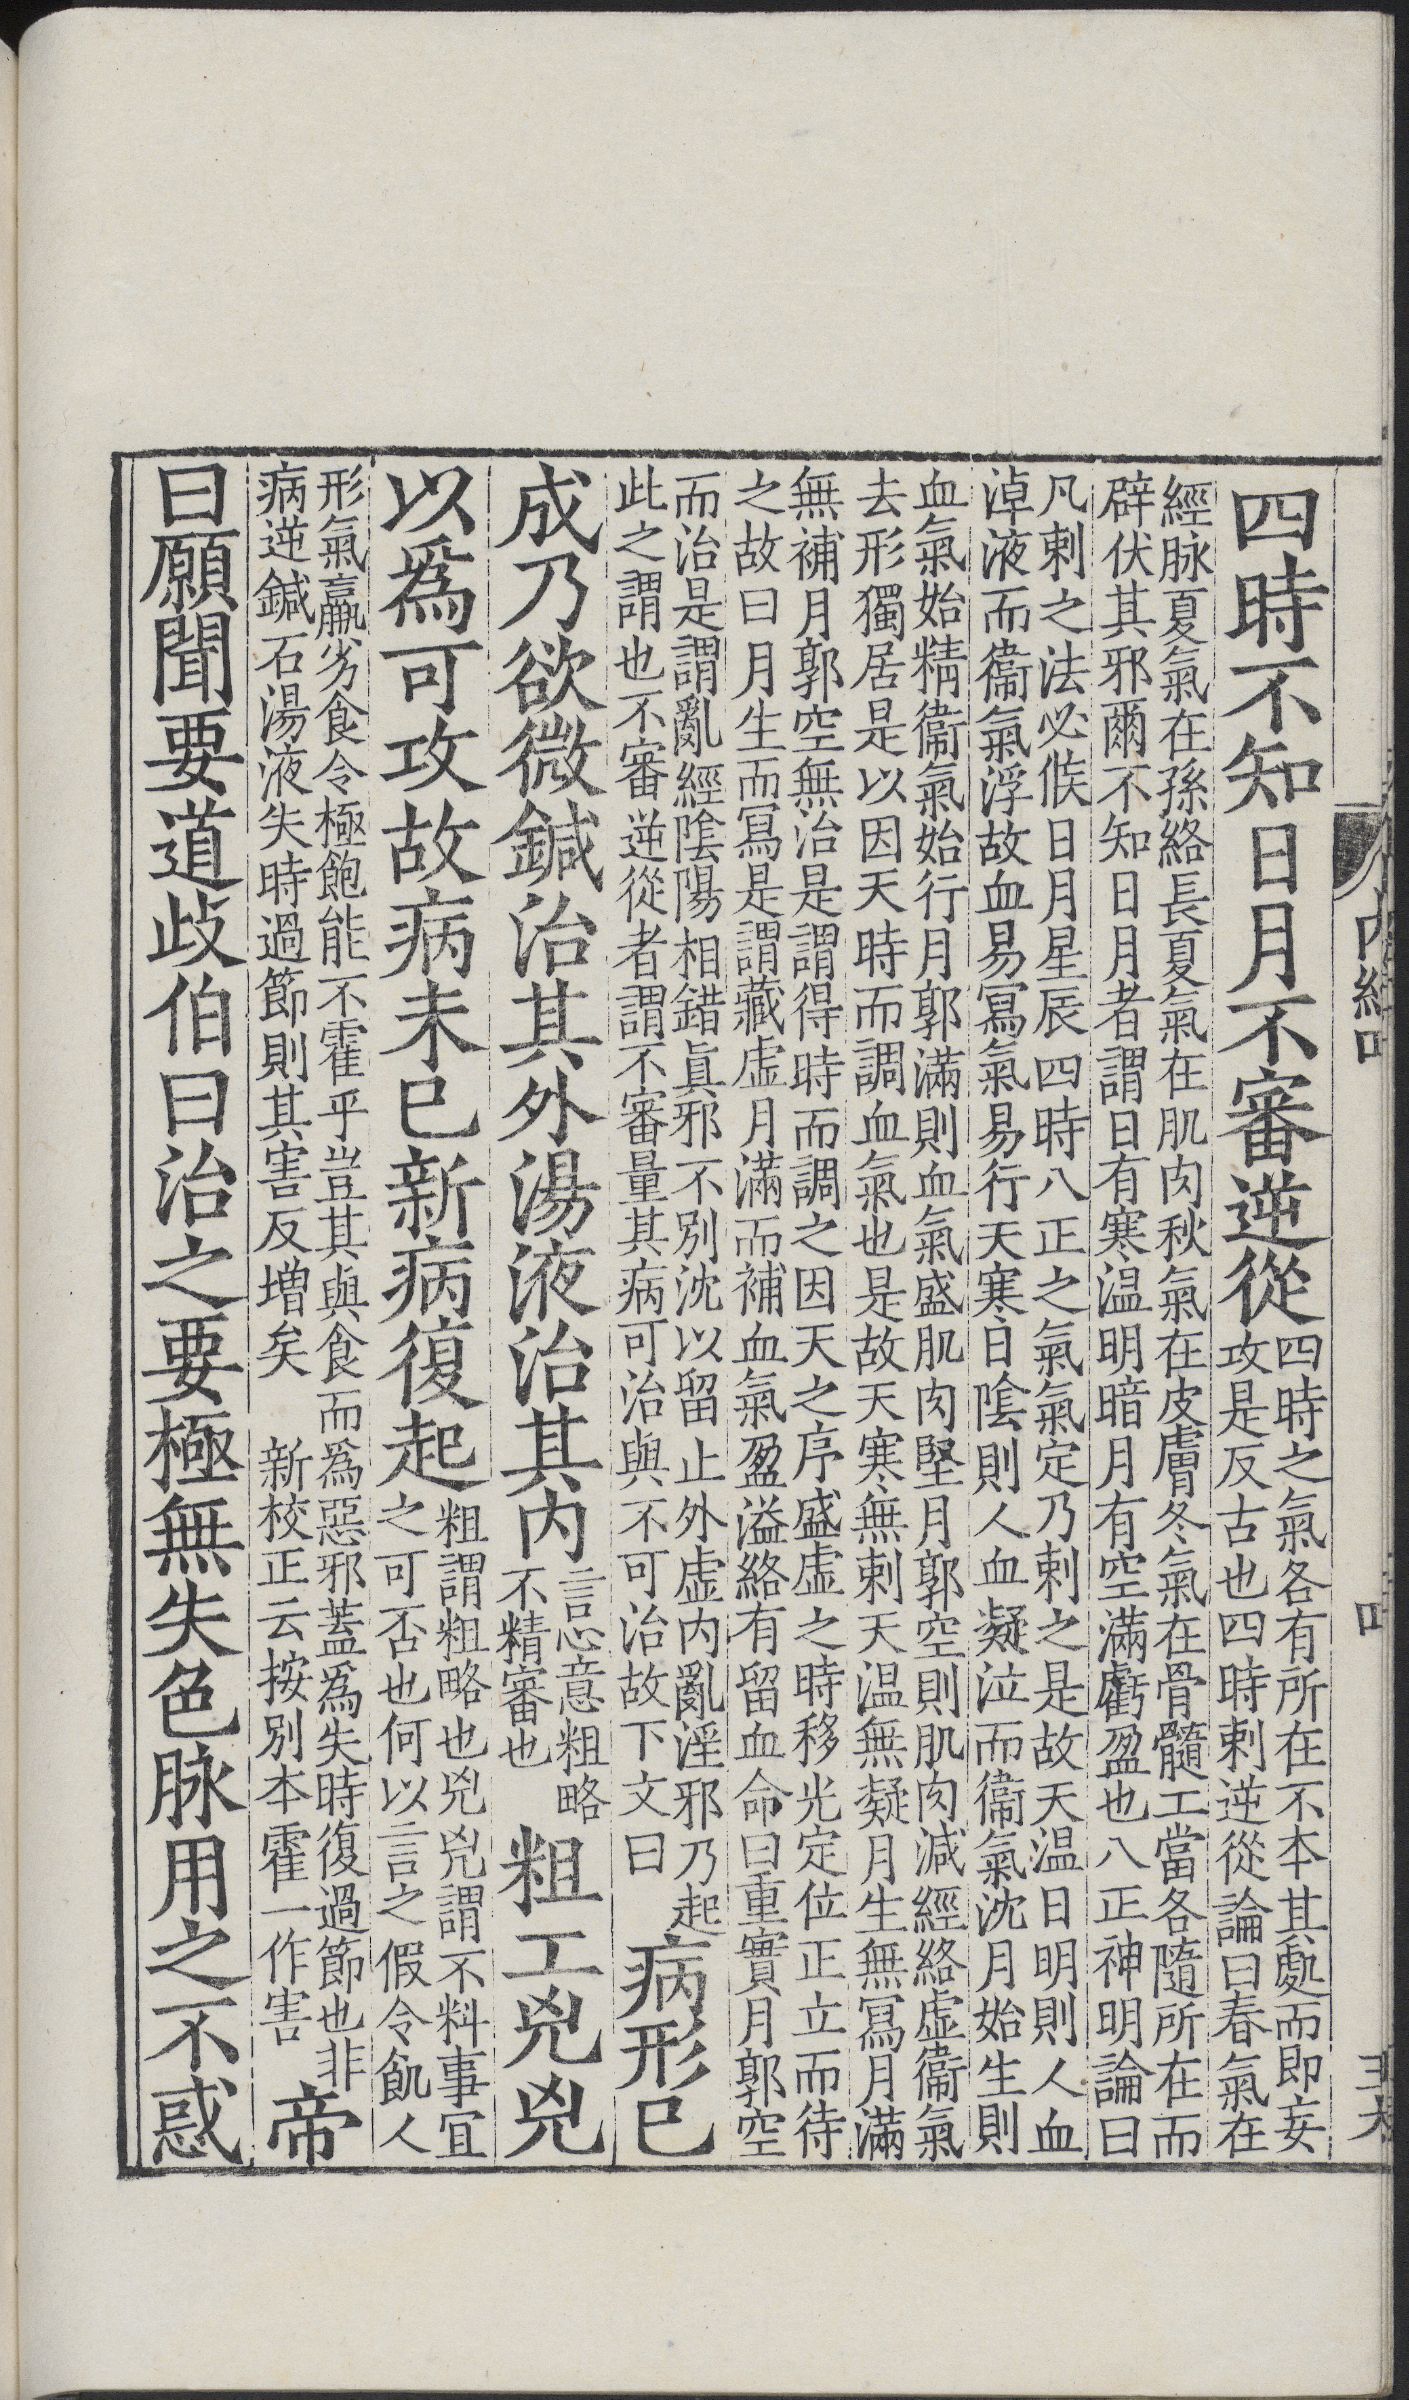 四時不知日月不審逆從四時之氣各有所在不本其處而即妄
攻是反古也四時刺逆從論曰春氣在
經脉夏氣在孫絡長夏氣在肌肉秋氣在皮膚冬氣在骨髓工當各隨所在而
辟伏其邪爾不知日月者謂日有寒温明暗月有空滿虧盈也八正神明論曰
凡刺之法必候日月星辰四時八正之氣氣定乃刺之是故天温日明則人血
淖液而衞氣浮故血易寫氣易行天寒日陰則人血凝泣而衞氣沈月始生則
血氣始精衞氣始行月郭滿則血氣盛肌肉堅月郭空則肌肉減經絡虛衞氣
去形獨居是以因天時而調血氣也是故天寒無刺天温無凝月生無寫月滿
無補月郭空無治是謂得時而調之因天之序盛虛之時移光定位正立而待
之故曰月生而寫是謂藏虛月滿而補血氣盈溢絡有留血命曰重實月郭空
而治是謂亂經陰陽相錯眞邪不別沈以留止外虛内亂淫邪乃起
此之謂也不審逆從者謂不審量其病可治與不可治故下文曰
病形已
成乃欲微鍼治其外湯液治其内言意粗略
不精審也
粗工兇兇
以爲可攻故病未已新病復起粗謂粗略也兇兇謂不料事宜
之可否也何以言之假令飢人
形氣羸劣食令極飽能不霍乎豈其與食而爲惡邪蓋爲失時復過節也非
病逆鍼石湯液失時過節則其害反増矣 新校正云按別本霍一作害
帝
曰願聞要道歧伯曰治之要極無失色脉用之不惑